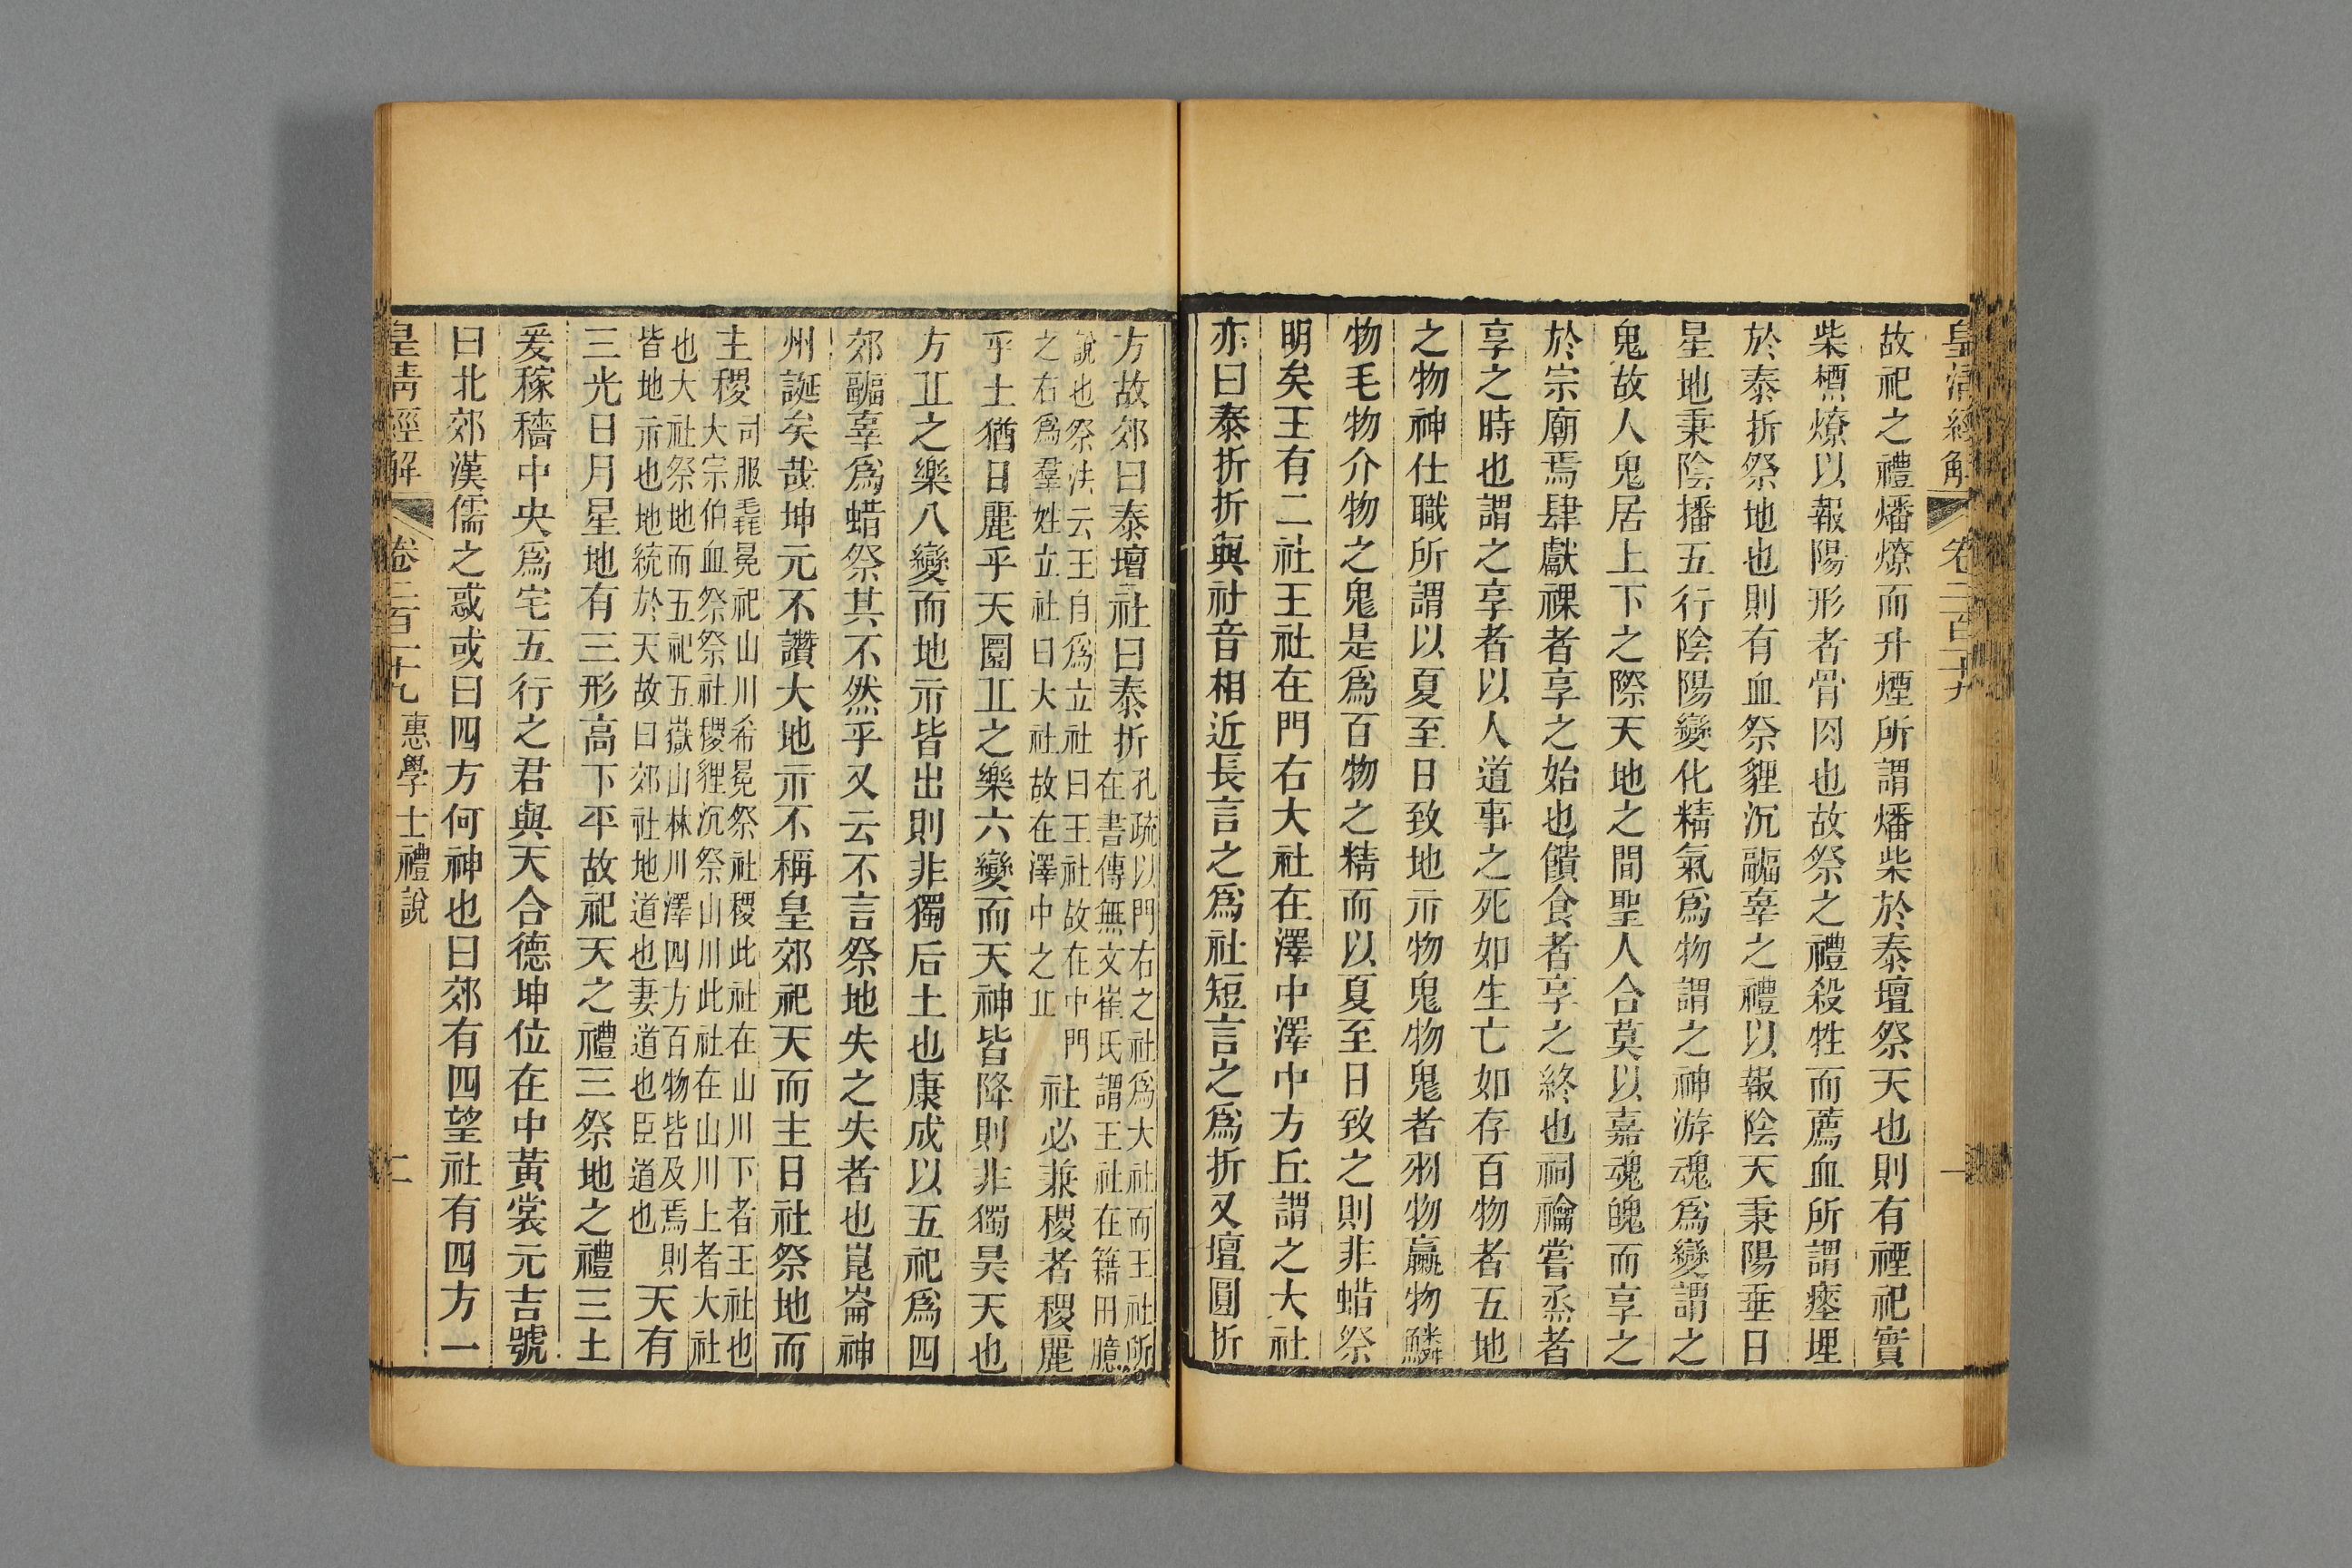 故祀之禮燔燎而升煙所謂燔柴於泰壇祭天也則有禋祀實
柴槱燎以報陽形者骨肉也故祭之禮殺牲而薦血所謂瘞埋
於泰折祭地也則有血祭貍沉疈辜之禮以報陰天秉陽垂日
星地秉陰播五行陰陽變化精氣爲物謂之神游魂爲變謂之
鬼故人鬼居上下之際天地之間聖人合莫以嘉魂魄而享之
於宗廟焉肆獻祼者享之始也饋食者享之終也祠禴嘗烝者
享之時也謂之享者以人道事之死如生亡如存百物者五地
之物神仕職所謂以夏至日致地示物鬼物鬼者羽物臝物鱗
物毛物介物之鬼是爲百物之精而以夏至日致之則非蜡祭
明矣王有二社王社在門右大社在澤中澤中方丘謂之大社
亦曰泰折折與社音相近長言之爲社短言之爲折又壇圓折
方故郊曰泰壇社曰泰折
孔疏以門右之社爲大社而王社所
在書傳無文崔氏謂王社在籍田臆
說也祭法云王自爲立社曰王社故在中門
之右爲羣姓立社曰大社故在澤中之丠
社必兼稷者稷麗
乎土猶日麗乎天圜丠之樂六變而天神皆降則非獨昊天也
方丠之樂八變而地示皆出則非獨后土也康成以五祀爲四
郊疈辜爲蜡祭其不然乎又云不言祭地失之失者也崑崙神
州誕矣哉坤元不讚大地示不稱皇郊祀天而主日社祭地而
主稷
司服毳冕祀山川希冕祭社稷此社在山川下者王社也
大宗伯血祭祭社稷貍沉祭山川此社在山川上者大社
也大社祭地而五祀五嶽山林川澤四方百物皆及焉則
皆地示也地統於天故曰郊社地道也妻道也臣道也
天有
三光日月星地有三形高下平故祀天之禮三祭地之禮三土
爰稼穡中央爲宅五行之君與天合德坤位在中黃裳元吉號
曰北郊漢儒之惑或曰四方何神也曰郊有四望社有四方一
皇清經解 卷二百二十九 惠學士禮說 二